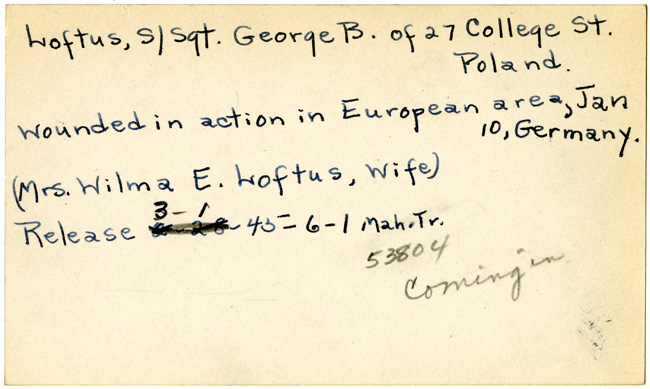 Loftus, S/Sgt. George B. of 27 College St.
Poland.
wounded in action in European area, Jan
10, Germany.
(Mrs. Wilma E. Loftus, Wife)
3-1
Release 2-28-45=6-1 Mah. Tr.
53804
Coming in